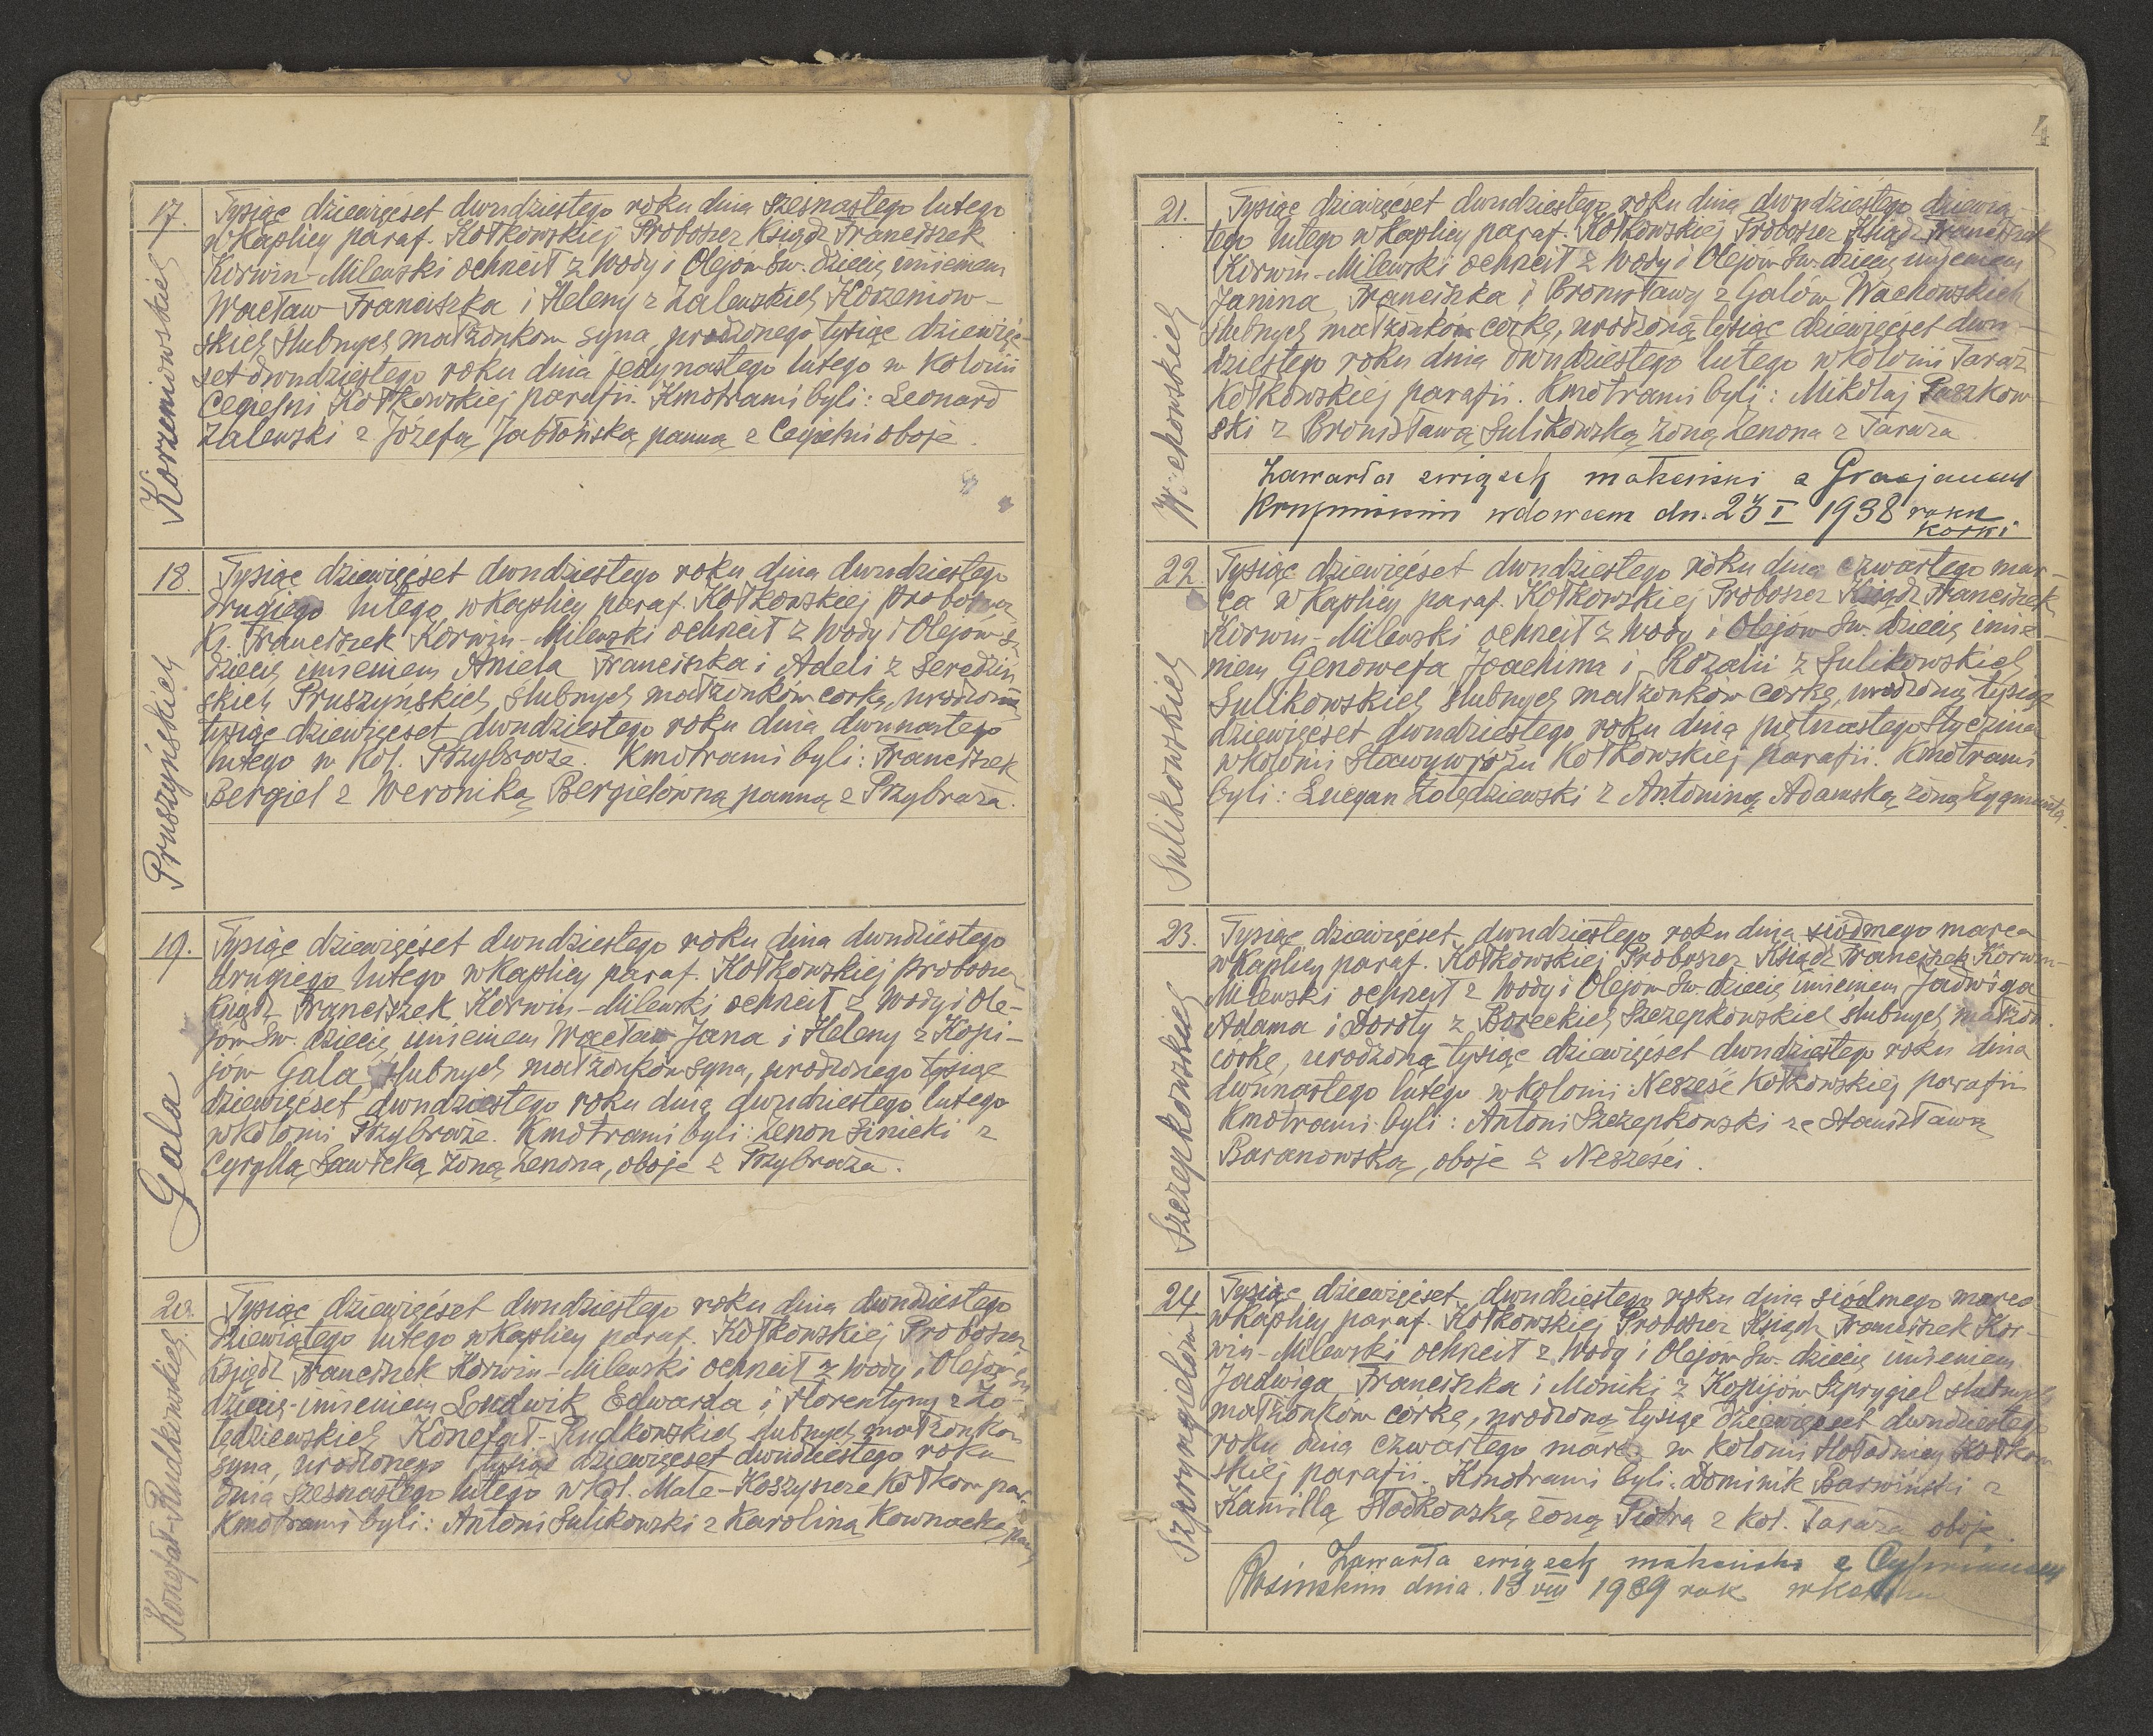 17.
Korzeniowskich
Tysiąc dziewięćset dwudziestego roku dnia szesnastego lutego
w Kaplicy paraf. Kołkowskiej Proboszcz Ksiądz Franciszek
Korwin-Milewski ochrzcił z Wody i Olejów Św. dziecię imieniem
Wacław Franciszka i Heleny z Zalewskich Korzeniow-
skich ślubnych małżonków syna, urodzonego tysiąc dziewięć-
set dwudziestego roku dnia jedynastego lutego w Kolonii
Cegielni Kołkowskiej parafii. Kmotrami byli: Leonard
Zalewski z Józefą Jabłońską panną z Cegielni oboje.
18.
Pruszyńskich
Tysiąc dziewięćset dwudziestego roku dnia dwudziestego
drugiego lutego w Kaplicy paraf. Kołkowskiej Proboszcz
Ks. Franciszek Korwin-Milewski ochrzcił z Wody i Olejów Ś.
dziecię imieniem Aniela Franciszka i Adeli z Seredziń
skich Pruszyńskich, ślubnych małżonków corkę, urodzoną
tysiąc dziewięćset dwudziestego roku dnia dwunastego
lutego w Kol. Przybraże. Kmotrami byli: Franciszek
Bergiel z Weroniką Bergielówną panną z Przybraża.
19.
Gala
Tysiąc dziewięćset dwudziestego roku dnia dwudziestego
drugiego lutego w Kaplicy paraf. Kołkowskiej Proboszcz
Ksiądz Franciszek Korwin-Milewski ochrzcił z Wody i Ole-
jów Św. dziecię imieniem Wacław Jana i Heleny z Kopi-
jów Gala ślubnych małżonków syna, urodzonego tysiąc
dziewięćset dwudziestego roku dnia dwudziestego lutego
w Kolonii Przybraże. Kmotrami byli: Zenon Sinicki z
Cyryllą Sawicką żoną Zenona, oboje z Przybraża.
20.
Konefał-Rudkowskich
Tysiąc dziewięćset dwudziestego roku dnia dwudziestego
dziewiątego lutego w Kaplicy paraf. Kołkowskiej Proboszcz
Ksiądz Franciszek Korwin-Milewski ochrzcił z Wody i Olejów Św
dziecię imieniem Ludwik Edwarda i Florentyny z Żo-
lędziewskich Konefał-Rudkowskich ślubnych małżonków
syna, urodzonego tysiąc dziewięćset dwudziestego roku
dnia szesnastego lutego w Kol. Małe-Koszyszcze Kołkow. par.
Kmotrami byli: Antoni Sulikowski z Karoliną Kownacką pan.
4
21.
Wachowskich
Tysiąc dziewięćset dwudziestego roku dnia dwudziestego dziewią-
tego lutego w Kaplicy paraf. Kołkowskiej Proboszcz Ksiądz Franciszek
Korwin-Milewski ochrzcił z Wody i Olejów Św. dziecię imieniem
Janina, Franciszka i Bronisławy z Galów Wachowskich
ślubnych małżonków córkę, urodzoną tysiąc dziewięćset dwu-
dziestego roku dnia dwudziestego lutego w kolonii Taraż
Kołkowskiej parafii. Kmotrami byli: Mikołaj Paszkow
ski z Bronisławą Sulikowską żoną Zenona z Taraża
Zawarła związek małżeński z Gracjanem
wdowcem dn. 23 I 1938 roku
Kołki
22.
Sulikowskich
Tysiąc dziewięćset dwudziestego roku dnia czwartego mar-
ca w Kaplicy paraf. Kołkowskiej Proboszcz Ksiądz Franciszek
Korwin-Milewski ochrzcił z Wody i Olejów Św. dziecię imie-
niem Genowefa Joachima i Rozalii z Sulikowskich
Sulikowskich ślubnych małżonków córkę, urodzoną tysiąc
dziewięćset dwudziestego roku dnia piętnastego Stycznia
w kolonii Kołkowskiej parafii. Kmotrami
byli: Lucyan Żolędziewski z Antoniną Adamską żoną Zygmunta.
23.
Szczepkowskich
Tysiąc dziewięćset dwudziestego roku dnia siódmego marca
w Kaplicy paraf. Kołkowskiej Proboszcz Ksiądz Franciszek Korwin-
Milewski ochrzcił z Wody i Olejów Św. dziecię imieniem Jadwiga
Adama i Doroty z Boreckich Szczepkowskich ślubnych małżon.
córkę, urodzoną tysiąc dziewięćset dwudziestego roku dnia
dwunastego lutego w kolonii Nerześć Kołkowskiej parafii
Kmotrami byli: Antoni Szczepkowski ze Stanisławą
Baranowską, oboje z Nerześci.
24
Szprynglelów
Tysiąc dziewięćset dwudziestego roku dnia siódmego marca
w Kaplicy paraf. Kołkowskiej Proboszcz Ksiądz Franciszek Kor-
win-Milewski ochrzcił z Wody i Olejów Św. dziecię imieniem
Jadwiga Franciszka i Moniki z Kopijów Szprygiel ślubnych
małżonków córkę, urodzoną tysiąc dziewięćset dwudziestego
roku dnia czwartego marca w kolonii Hołodnicy Kołkow
skiej parafii. Kmotrami byli: Dominik Barwiński z
Kamillą Słodkowską żoną Piotra z Kol. Taraża oboje.
Zawarła związek małżeński z Cyprianem
Rosinskim dnia 13 VIII 1939 rok